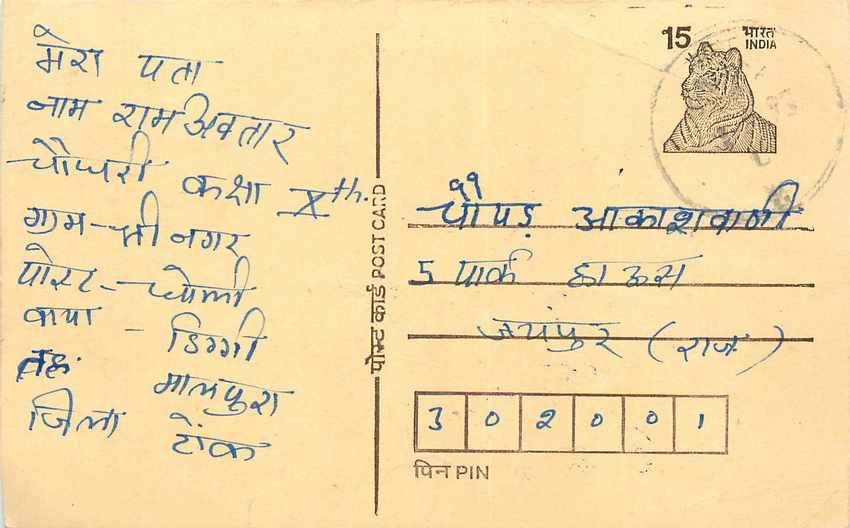 मेरा पता
नाम रामअवतार
चौधरी कक्षा Xth.
ग्राम - श्रीनगर
पोस्ट - धोली
वाया - डिग्गी
तह. मालपुरा
जिला टोंक
पोस्ट कार्ड POST CARD
15 भारत
INDIA
चौपड़ आकाशवाणी
5 पार्क हाऊस
जयपुर (राज.)
3 0 2 0 0 1
पिन PIN